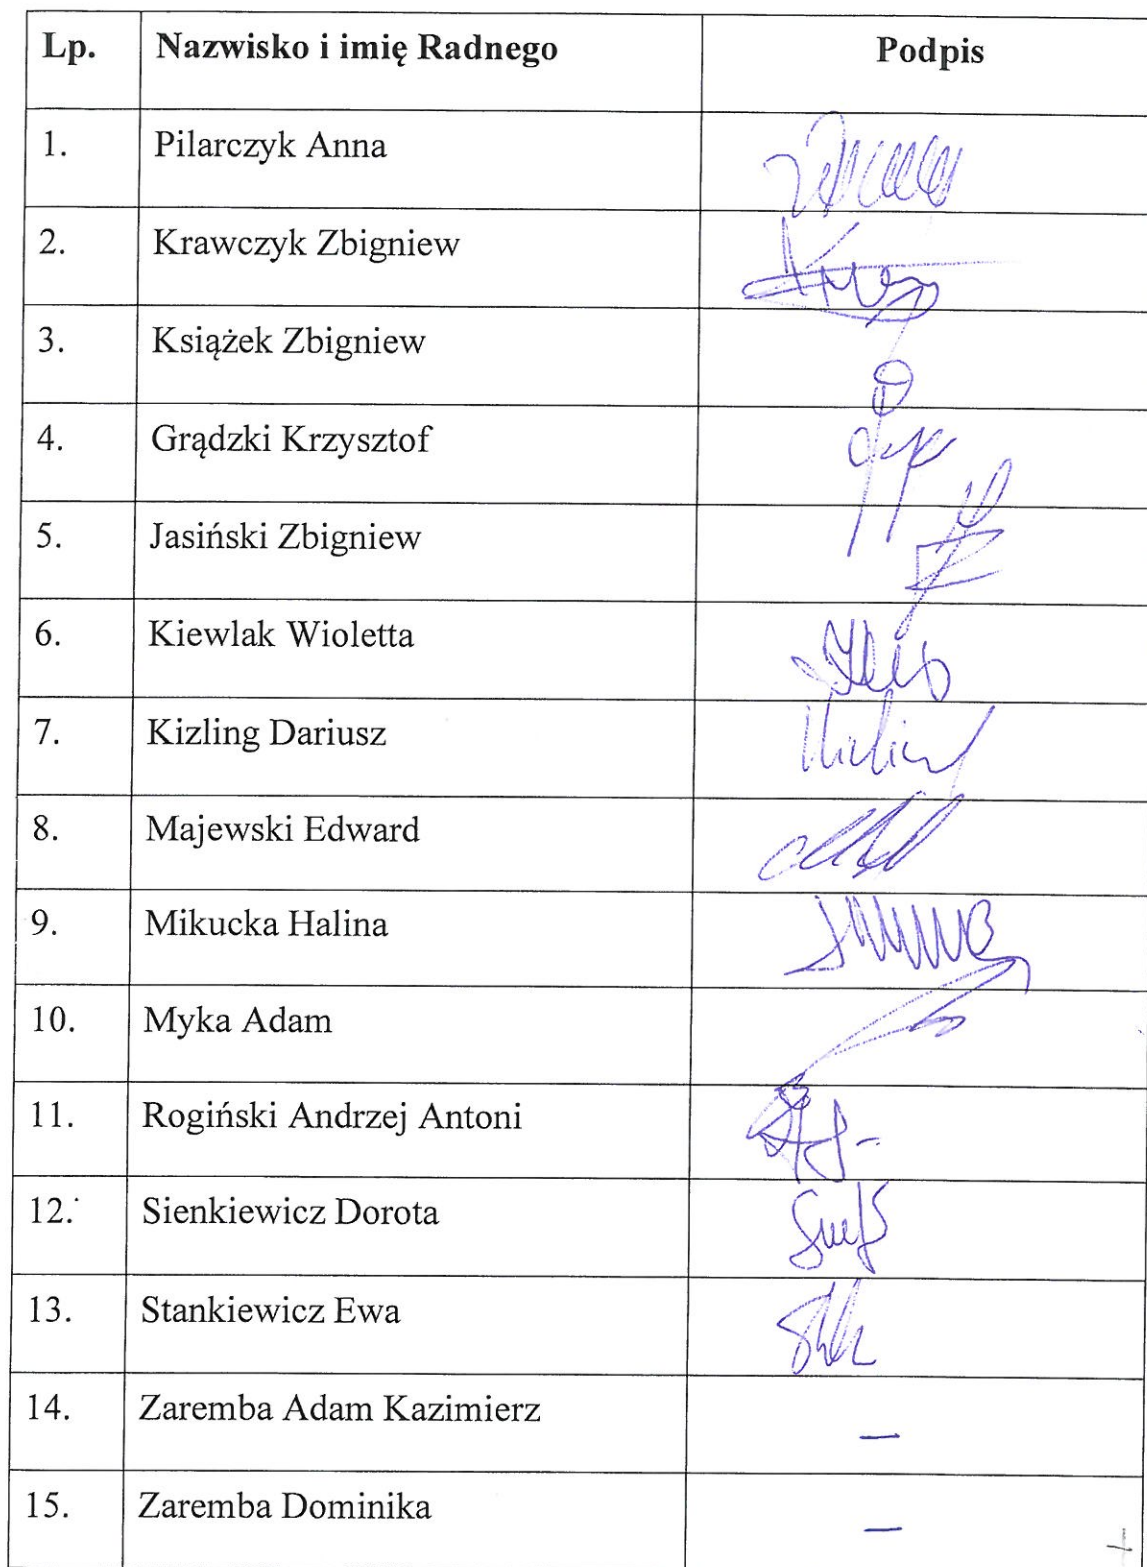 Lp. Nazwisko i imię Radnego Podpis
1. Pilarczyk Anna
2. Krawczyk Zbigniew
3. Książek Zbigniew
4. Grądzki Krzysztof
5. Jasiński Zbigniew
6. Kiewlak Wioletta
7. Kizling Dariusz
8. Majewski Edward
9. Mikucka Halina
10. Myka Adam
11. Rogiński Andrzej Antoni
12. Sienkiewicz Dorota
13. Stankiewicz Ewa
14. Zaremba Adam Kazimierz —
15. Zaremba Dominika —